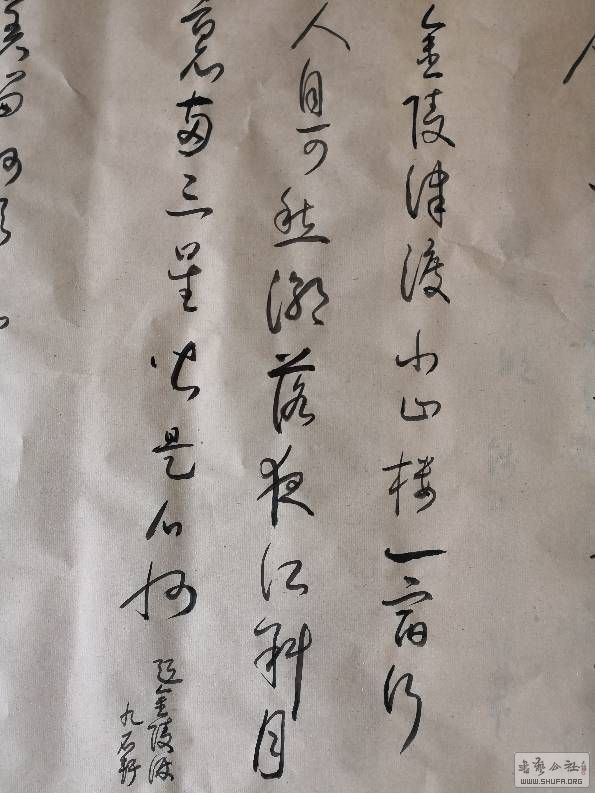 金陵津渡小山楼一宿行
人自可愁潮落夜江斜月
裏兩三星火是瓜洲
題金陵渡
九石軒
书艺公社
WWW.SHUFA.ORG